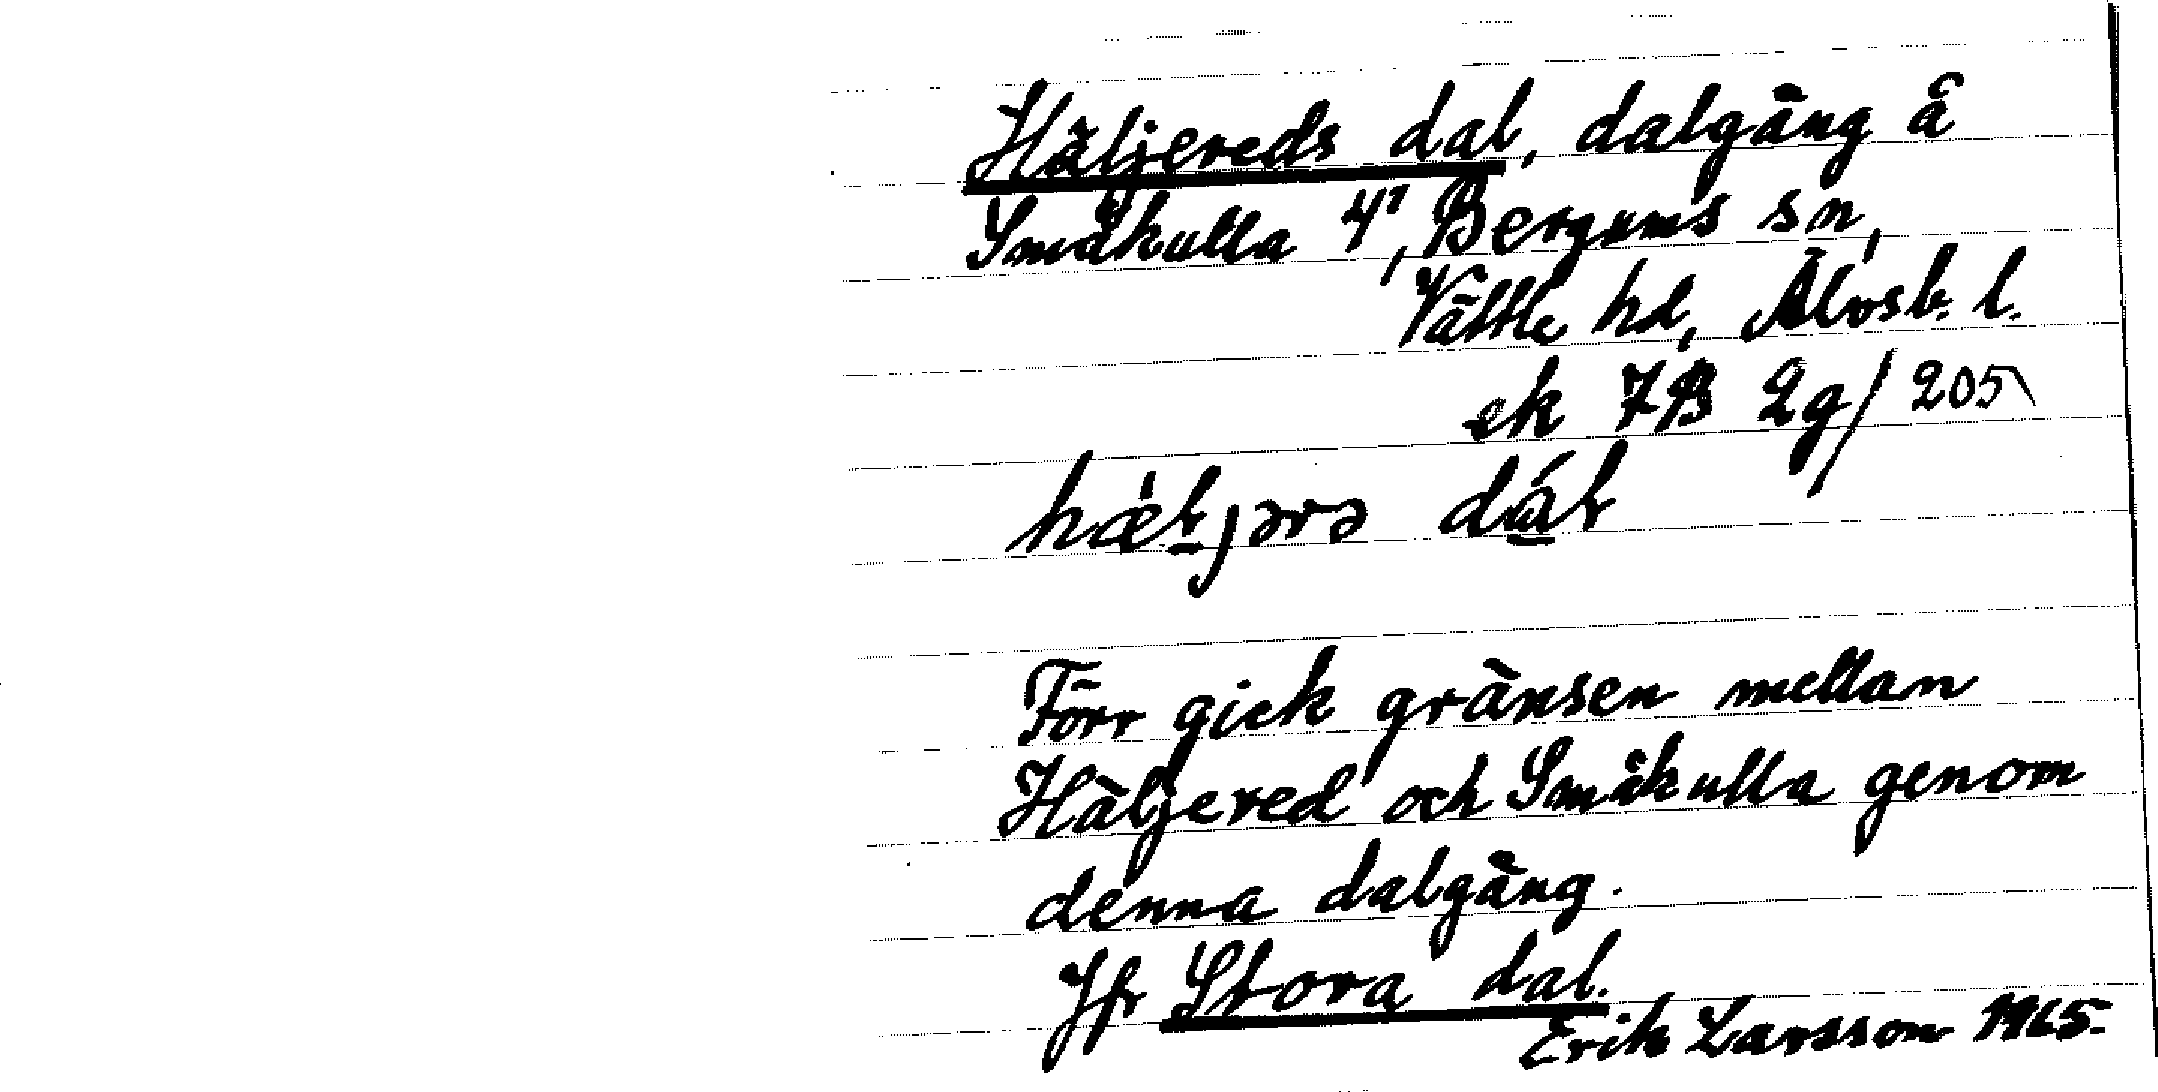 Häljereds dal, dalgång å
Småkulla 4¹, Bergums sn,
Vättle hd, Älvsb. l.
ek 7B 2g/205
hæ̀ljərə dál
Förr gick gränsen mellan
Häljered och Småkulla genom
denna dalgång.
Jfr Stora dal.
Erik Larsson 1965.